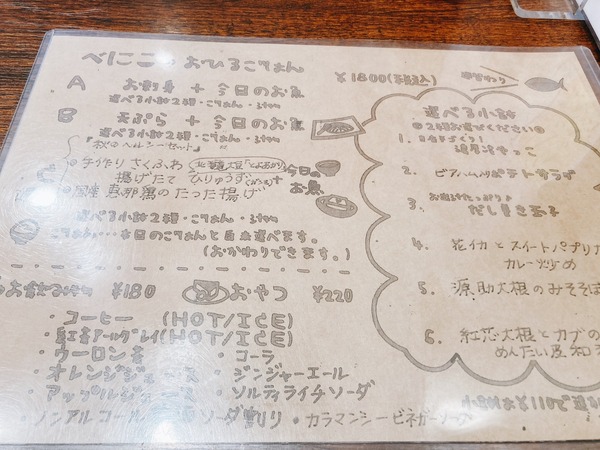 べにこの おひるごはん
¥1800(税込)
A お刺身 + 今日のお魚
選べる小鉢2種・ごはん・汁物
B 天ぷら + 今日のお魚
選べる小鉢2種・ごはん・汁物
『秋のヘルシーセット』
手作り さくふわ 北海道大豆「とよまさり」
揚げたて ひりゅうず
国産 恵那鶏のたった揚げ
今日のお魚
選べる小鉢2種・ごはん・汁物
ごはん…本日のごはんと白米選べます。
(おかわりできます。)
お飲み物 ¥180
おやつ ¥220
・コーヒー (HOT/ICE)
・紅茶アールグレイ(HOT/ICE)
・ウーロン茶
・コーラ
・オレンジジュース
・ジンジャーエール
・アップルジュース
・ソルティライチソーダ
ノンアルコール ソーダ割り
・カラマンシービネガーソーダ
選べる小鉢
2種お選びください
1. 自家製手づくり!
2. ビアハム入りポテトサラダ
3. お出汁たっぷり♪
だし巻き玉子
4. 花イカとスイートパプリカ
カレー炒め
5. 源助大根のみそそぼ
6. 紅芯大根とカブの
めんたい